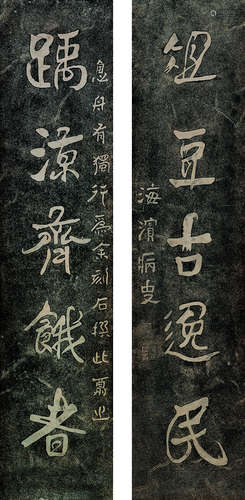 俎豆古逸民
海濱病叟
息丹有獨行為余刻石撰此勗之
踽涼齊餓者